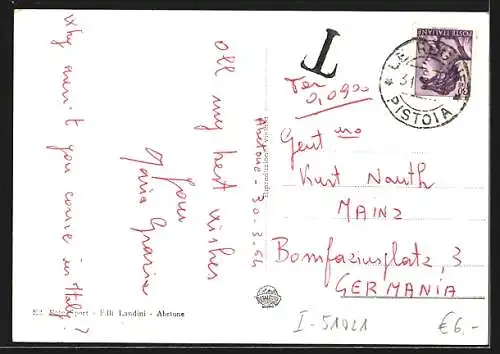 Why aren't you come in Italy?
All my best wishes
Your
Maria Grazia
Abetone - 30-3-64
Riproduzione vietata
T
POSTE ITALIANE
PISTOIA
31
0,0900
Gent mo
Kurt Nauth
MAINZ
Bonifaziusplatz, 3
GERMANIA
Sport - F.lli Landini - Abetone
I-51021
€6.-